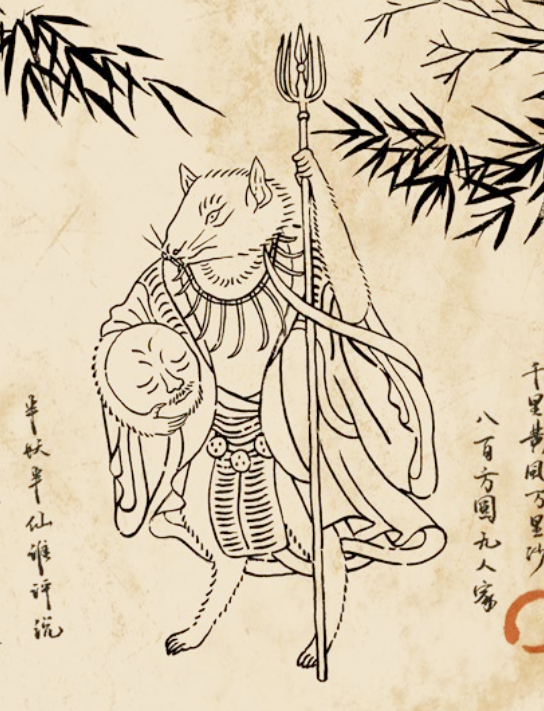 千里黄风万里沙
八百方圆九人家
半妖半仙谁评说